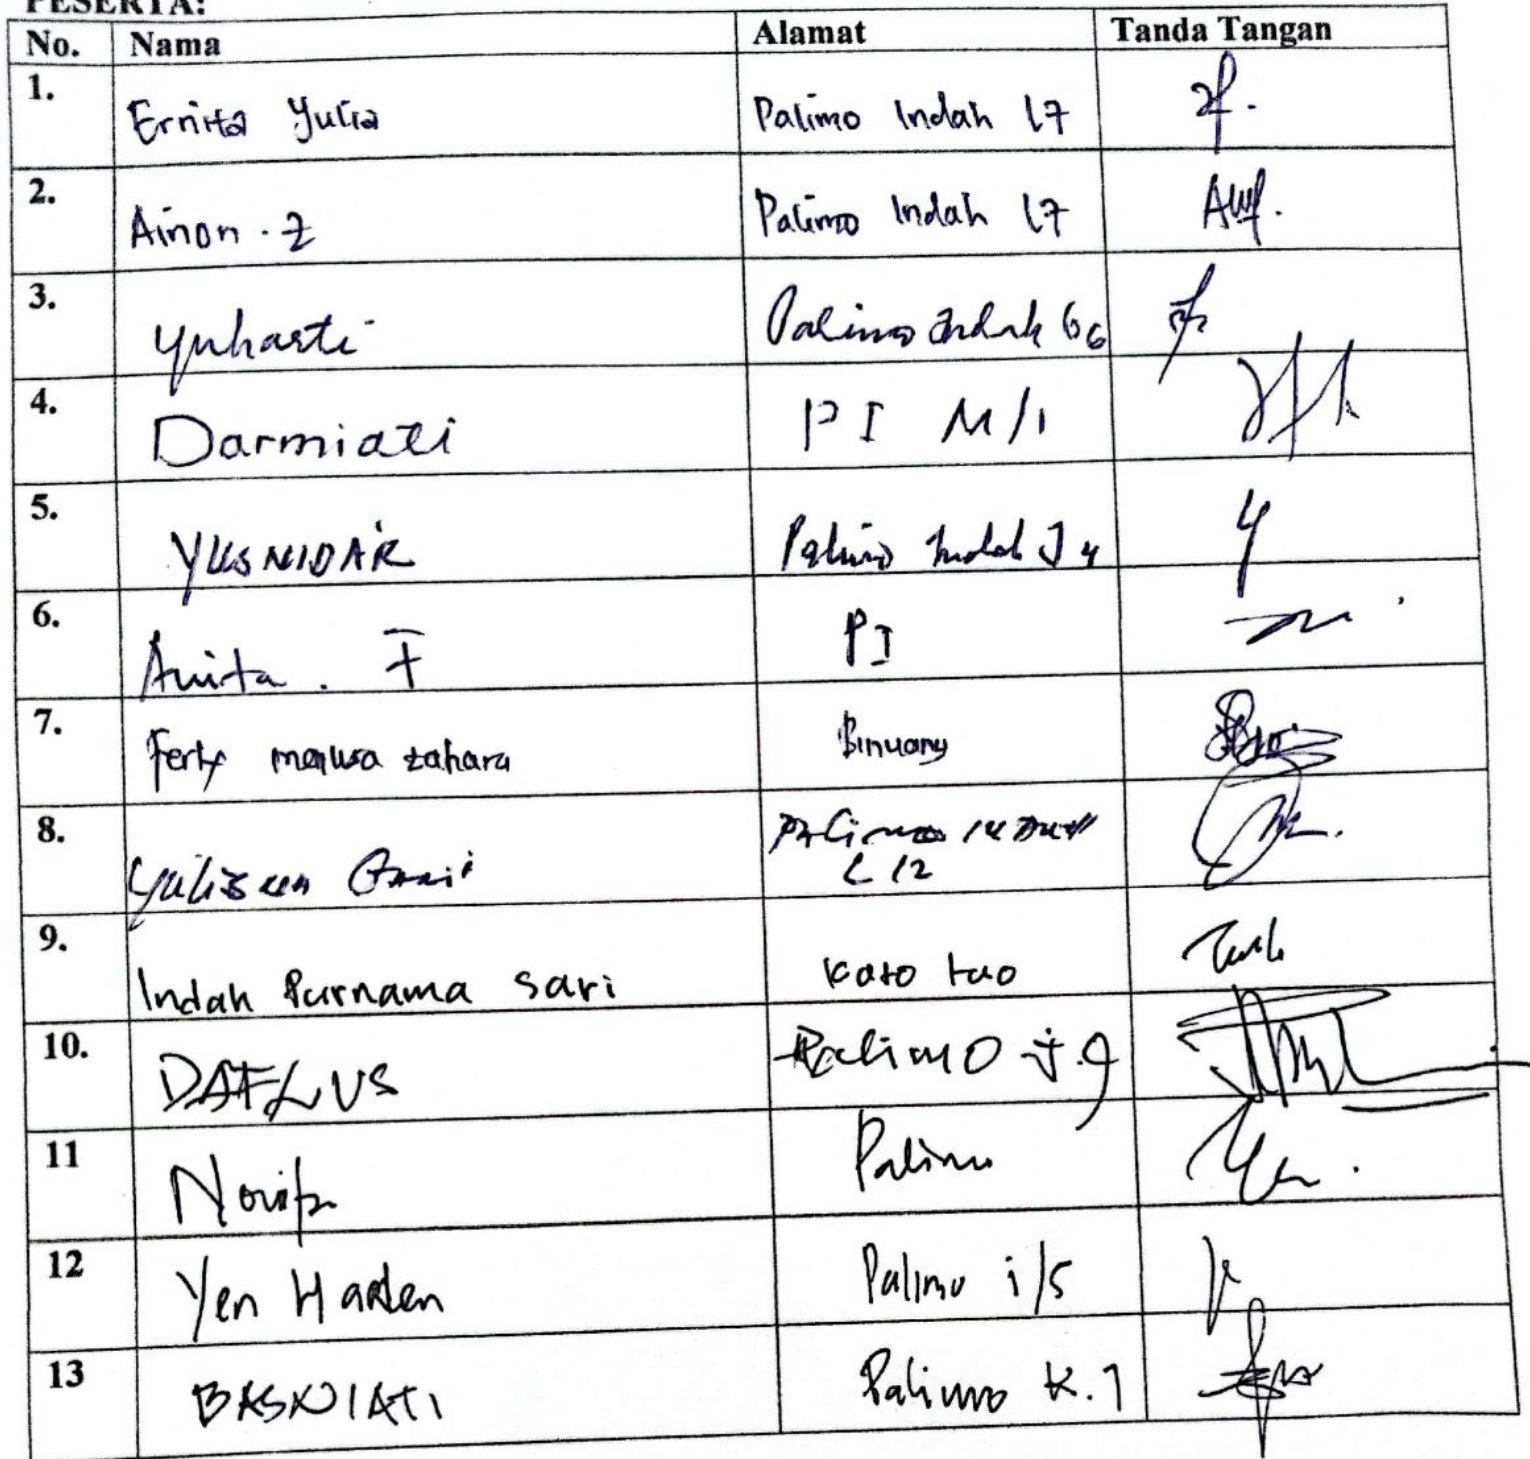 PESERTA:
No. Nama Alamat Tanda Tangan
1. Ernita Yulia Palimo Indah L7
2. Ainon . Z Palimo Indah L7
3. Yuharti Palimo Indah G6
4. Darmiati PI M/1
5. YUSNIDAR Palimo Indah J4
6. Anita . F PI
7. Ferly zahara Binuang
8. Palimo INDAH
L 12
9. Indah Purnama Sari Koto tuo
10. DAFLUS Palimo J.9
11 Novita Palimo
12 Yen Harlen Palimo i/5
13 BASNIATI Palimo K.1